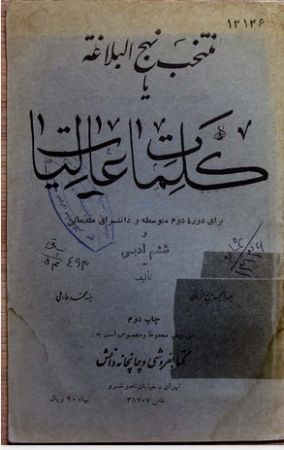 ۱۳۱۳۶
منتخب نهج البلاغة
یا
کلمات عالیات
برای دورۀ دوم متوسطه و دانشسرای مقدماتی
و
ششم ادبی
تألیف
سید محمد عادلی
چاپ دوم
حق چاپ محفوظ و مخصوص است به:
کتابفروشی و چاپخانه دانش
تهران - خیابان ناصرخسرو
تلفن: ۳۸۷۰۷
بهاء ۲۰ ریال